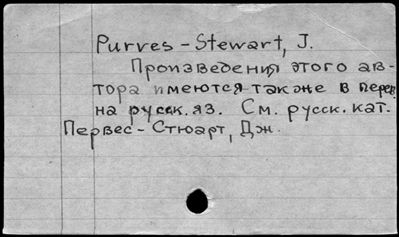 Purves - Stewart, J.
Произведения этого ав-
тора имеются также в перев.
на русск. яз. См. русск. кат.
Первес - Стюарт, Дж.